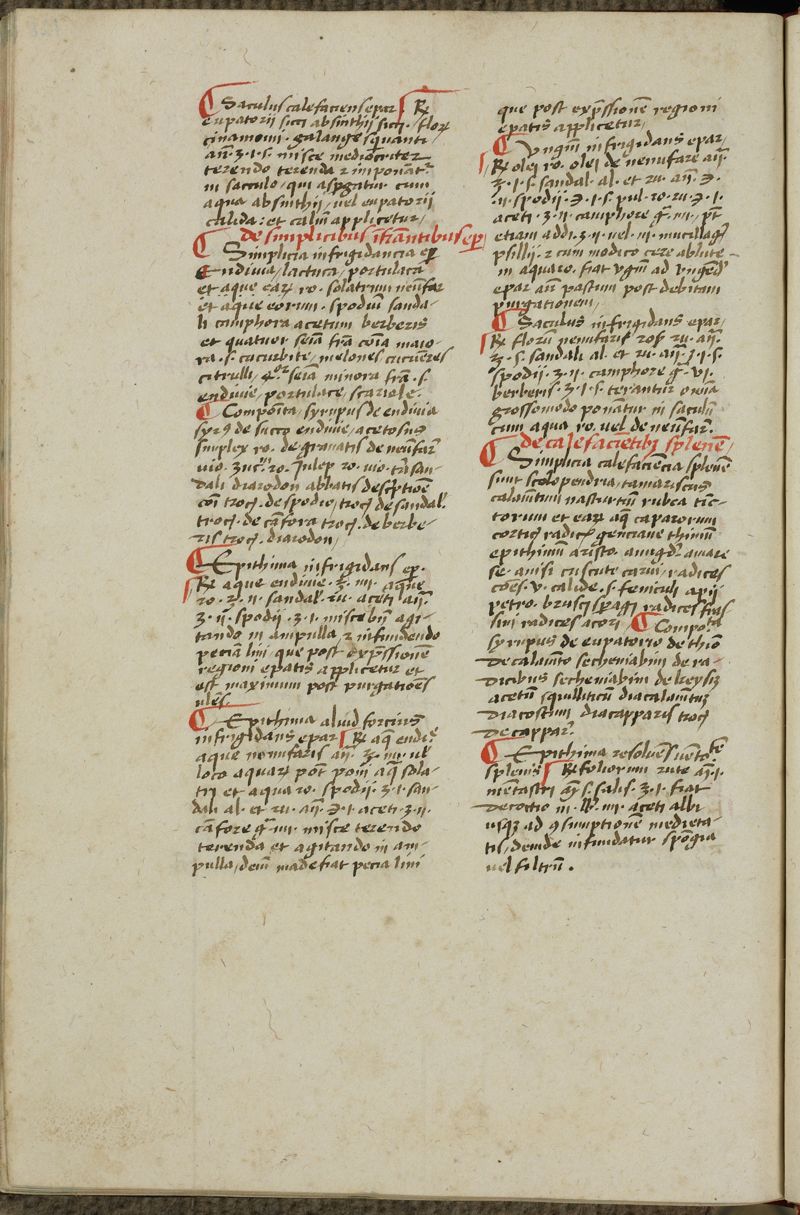 Saculus calefaciens epar ℞
eupatorii sicci absinthii sicci. florꝝ
cinamomi. galange squinanti
añ. ʒ. i. s. misce mediocriter
terendo terenda ⁊ imponāt᷑
in sacculo / qui aspgatur cum
aqua absinthij / vel eupatorii
calida: et calim̄ applicetur /
de simplicibus ifrāntibus epar
Simplicia infrigidancia epar
Endivia / lactuca / portulaca
et aque earꝝ ro. solatrum neufar
et aque eorum. spodiū sanda-
li camphora acetum berberis
et quatuor seīa fr̄a cōia maio-
ra. s. cucurbite / melones cucumeres
citrulli / 4or seīa minora fr̄a. s.
endivie / portulace / scariole.
Compoīta / syrupus de endivia
syrꝰ de succo endivie / acetosus
simplex ro. de granatis de neufar
vio. zuc. ro. Julep ro. vio. trisan-
dali diarodon abbatis descptiōe
cōi trocj. de spodio / trocj de sandal.
trocj. de cāfora trocj. de berbe-
ris trocj. diarodon /
Epithima infrigidans epr.
℞ aque endivie. ℥. iiii. aque
ro. ℥. ii. sandal. ru. aceti añ.
ʒ. ii. spodij. ʒ. i. misce bn̄ agi-
tando in ampulla / ⁊ infundendo
pecia lini que post expressionē
regioni epatis applicetur et
est maximum post purgatiōēs
vl̄es.
Epithima aliud forcius
infrigidans epar ℞ aq̄ endi.
aque nenufaris añ. ℥. iii. vel
loco aquarꝝ pot̄ poni aq̄ sola-
tri et aqua ro. spodij. ʒ. i. san-
dali al. et ru. añ. ℈. i. aceti. ʒ. ii.
cāfore gͬ. iii. misce terendo
terenda et agitando in am-
pulla / dein̄ madefiat pecia lini
que post exp̄ssionē regioni
epatis applicetur /
Vngm̄ infrigidans epar
℞ olej ro. olej de nenufare añ.
℥. i. s. sandal. al. et ru. añ. ℈.
ii. spodij. ℈. i. s. pul. ro. ru. ℈. i.
aceti. ʒ. ii. camphore gͬ. iii. pt̄
etiam addi. ʒ. ii. vel. iii. mucillagͥ
psillij. ⁊ cum modico cere ablute
in aqua ro. fiat vgm̄ ad vngend
epar an̄ pastum post debitam
purgationem /
Saculus infrigidans epar /
℞ florū nenufaris rosꝝ ru. añ.
℥. s. sandali al. et ru. añ. ʒ. i. s.
spodij. ʒ. ii. camphore gͬ. vi.
berberis. ʒ. i. s. terantur omīa
grossomodo ponatur in saculū
cum aqua ro. vel de neufar.
de calefacietibꝫ splenē /
Simplicia calefaciēcia splenē
sunt scolopendria / tamariscus
calamītum nasturtiū rubea tīc-
torum et earꝝ aq̄ caparorum
corticꝭ radicꝭ genciane thimū
epithimū aristo. amigdꝉ. amare
se. anisi cuscute carui / radices
cōes. v. calide. s. feniculi apij
petro. brusci spagi radices fras
sini radices acori / Compoīta
syrupus de eupatorio de thiō
de calamīto secheniabini de ra-
dicibus secheniabini de keysiꝫ
acetū squilliticū diacalamītuꝫ
diacostum diacapparis trocj
de cappar.
Epithima resolvēs vētotē
splenis ℞ foliorum rute añ. i.
mētastri añ. s. salis. ʒ. i. fiat
decoctio in. lb. iii. aceti albi
usqꝫ ad ꝯsumptionē medieta-
tis / deinde infundatur spōgia
vel filtrū.